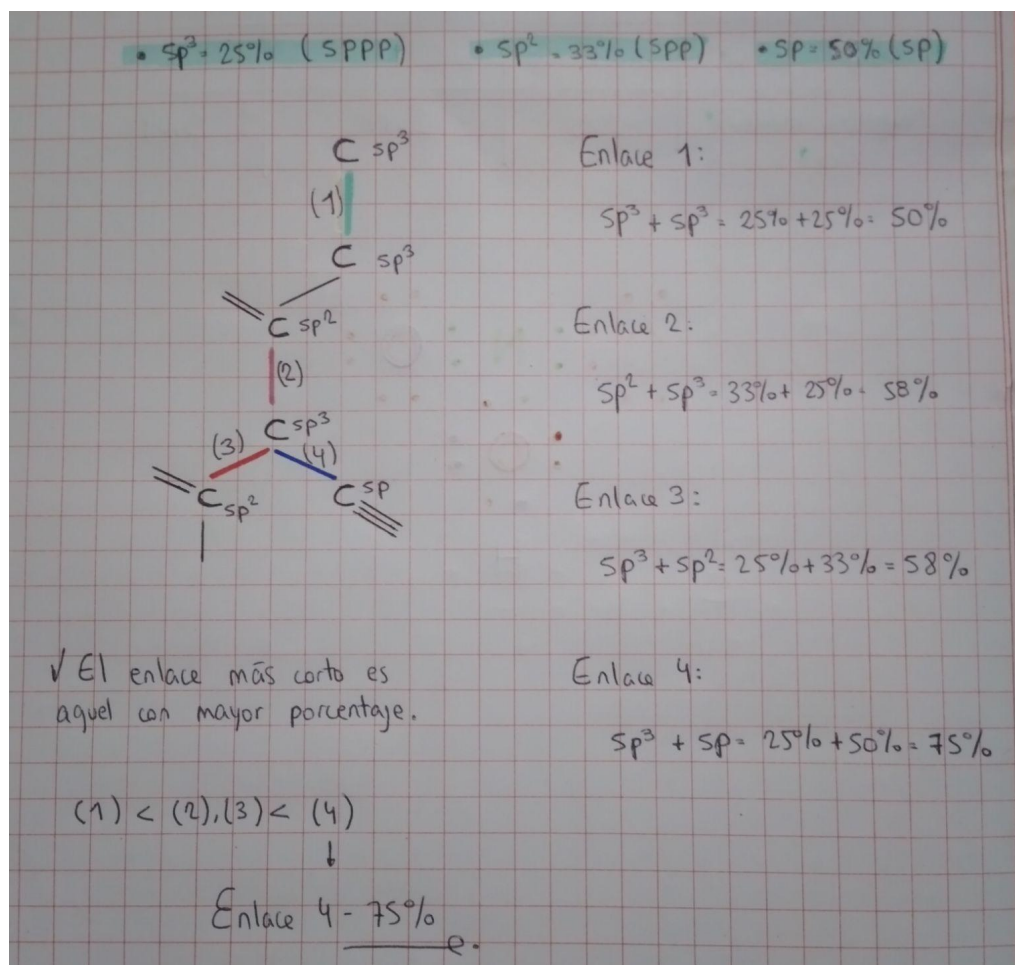 • sp³ = 25% (SPPP) • sp² = 33% (SPP) • sp = 50% (SP)
C sp³
(1)
C sp³
C sp²
(2)
C sp³
(3) (4)
C sp² C sp
Enlace 1:
sp³ + sp³ = 25% + 25% = 50%
Enlace 2:
sp² + sp³ = 33% + 25% = 58%
Enlace 3:
sp³ + sp² = 25% + 33% = 58%
Enlace 4:
sp³ + sp = 25% + 50% = 75%
✓ El enlace más corto es
aquel con mayor porcentaje.
(1) < (2), (3) < (4)
↓
Enlace 4 - 75%